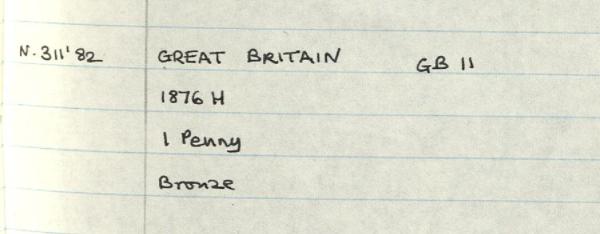 N.311'82 GREAT BRITAIN GB 11
1876 H
1 Penny
Bronze